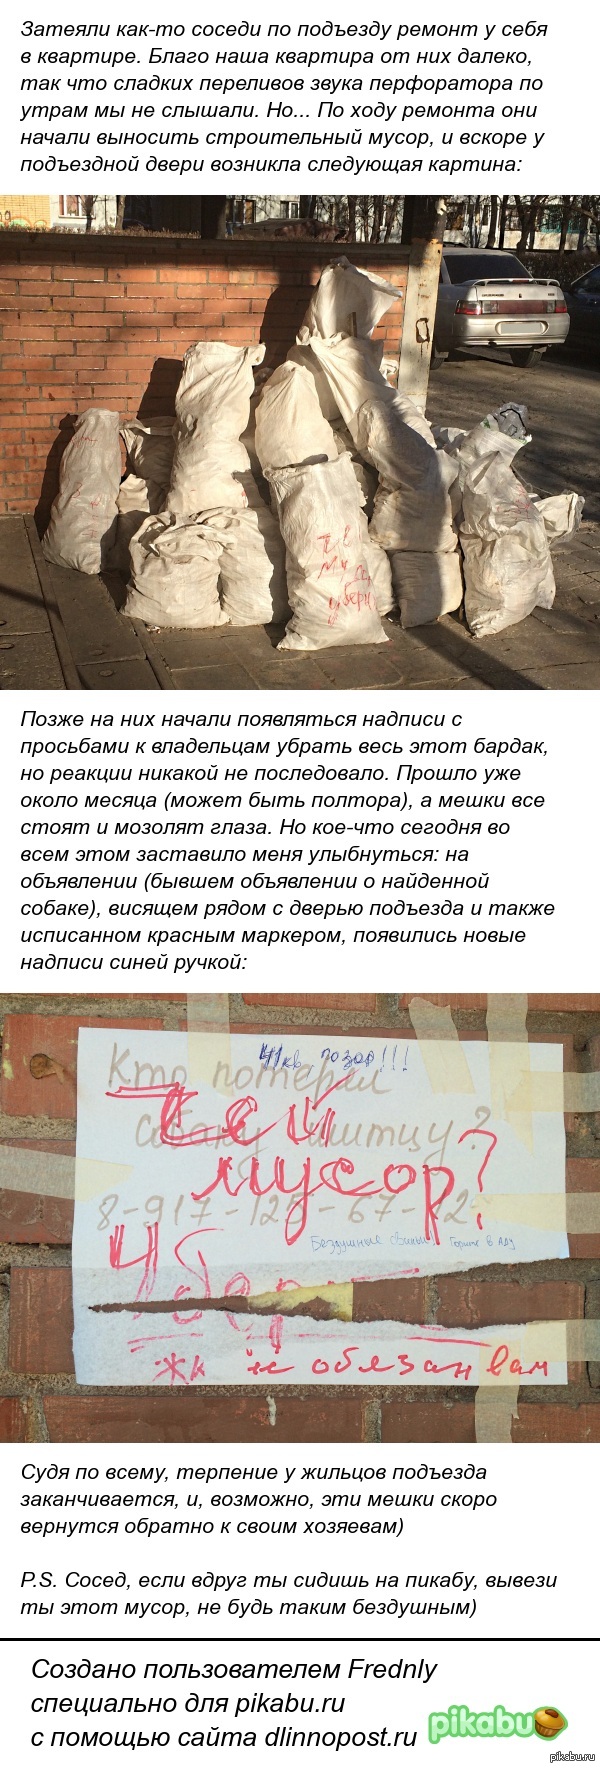 Затеяли как-то соседи по подъезду ремонт у себя
в квартире. Благо наша квартира от них далеко,
так что сладких переливов звука перфоратора по
утрам мы не слышали. Но... По ходу ремонта они
начали выносить строительный мусор, и вскоре у
подъездной двери возникла следующая картина:
Позже на них начали появляться надписи с
просьбами к владельцам убрать весь этот бардак,
но реакции никакой не последовало. Прошло уже
около месяца (может быть полтора), а мешки все
стоят и мозолят глаза. Но кое-что сегодня во
всем этом заставило меня улыбнуться: на
объявлении (бывшем объявлении о найденной
собаке), висящем рядом с дверью подъезда и также
исписанном красным маркером, появились новые
надписи синей ручкой:
41кв. позор!!!
Кто потерял
собаку
Чей
мусор?
Бездушные свиньи! Горите в аду
жк не обязан вам
Судя по всему, терпение у жильцов подъезда
заканчивается, и, возможно, эти мешки скоро
вернутся обратно к своим хозяевам)
P.S. Сосед, если вдруг ты сидишь на пикабу, вывези
ты этот мусор, не будь таким бездушным)
Создано пользователем Frednly
специально для pikabu.ru
с помощью сайта dlinnopost.ru
pikabu
pikabu.ru